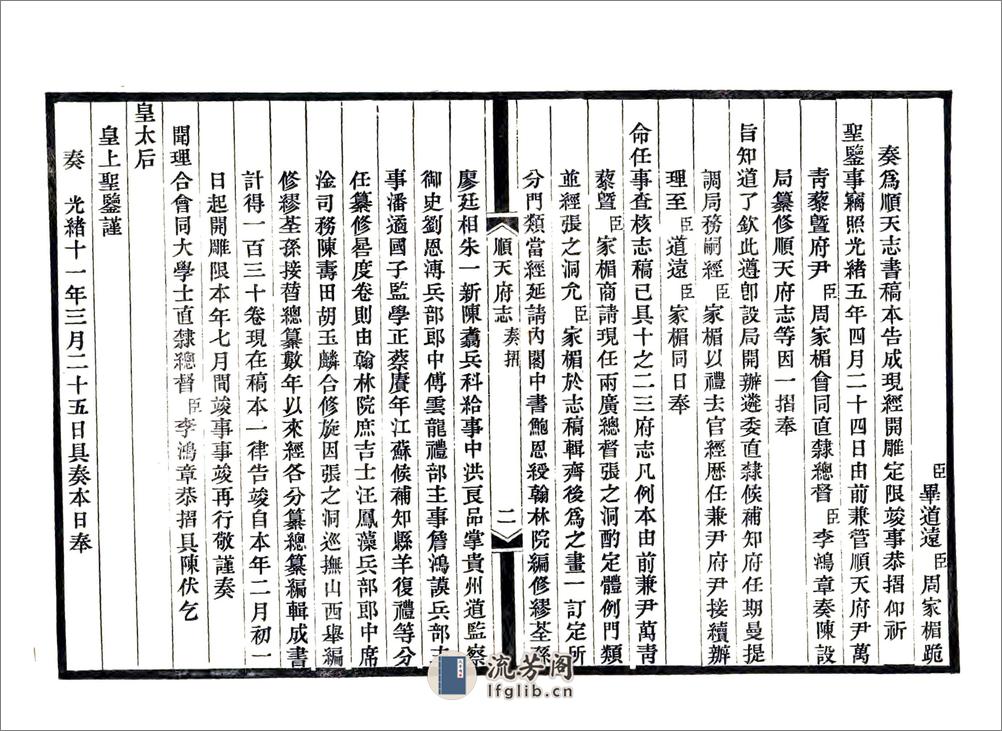 臣畢道遠臣周家楣跪
奏爲順天志書稿本告成現經開雕定限竣事恭摺仰祈
聖鑒事竊照光緒五年四月二十四日由前兼管順天府尹萬
靑藜曁府尹臣周家楣會同直隸總督臣李鴻章奏陳設
局纂修順天府志等因一摺奉
旨知道了欽此遵卽設局開辦遴委直隸候補知府任期曼提
調局務嗣經臣家楣以禮去官經歷任兼尹府尹接續辦
理至臣道遠臣家楣同日奉
命任事查核志稿已具十之二三府志凡例本由前兼尹萬靑
藜曁臣家楣商請現任兩廣總督張之洞酌定體例門類
並經張之洞允臣家楣於志稿輯齊後爲之畫一訂定所
分門類當經延請內閣中書鮑恩綬翰林院編修繆荃孫
順天府志 奏摺 二
廖廷相朱一新陳翥兵科給事中洪良品掌貴州道監察
御史劉恩溥兵部郎中傅雲龍禮部主事詹鴻謨兵部主
事潘遹國子監學正蔡賡年江蘇候補知縣羊復禮等分
任纂修晷度卷則由翰林院庶吉士汪鳳藻兵部郎中席
淦司務陳壽田胡玉麟合修旋因張之洞巡撫山西舉編
修繆荃孫接替總纂數年以來經各分纂總纂編輯成書
計得一百三十卷現在稿本一律告竣自本年二月初一
日起開雕限本年七月間竣事事竣再行敬謹奏
聞理合會同大學士直隸總督臣李鴻章恭摺具陳伏乞
皇太后
皇上聖鑒謹
奏 光緒十一年三月二十五日具奏本日奉
流芳閣
lfglib.cn